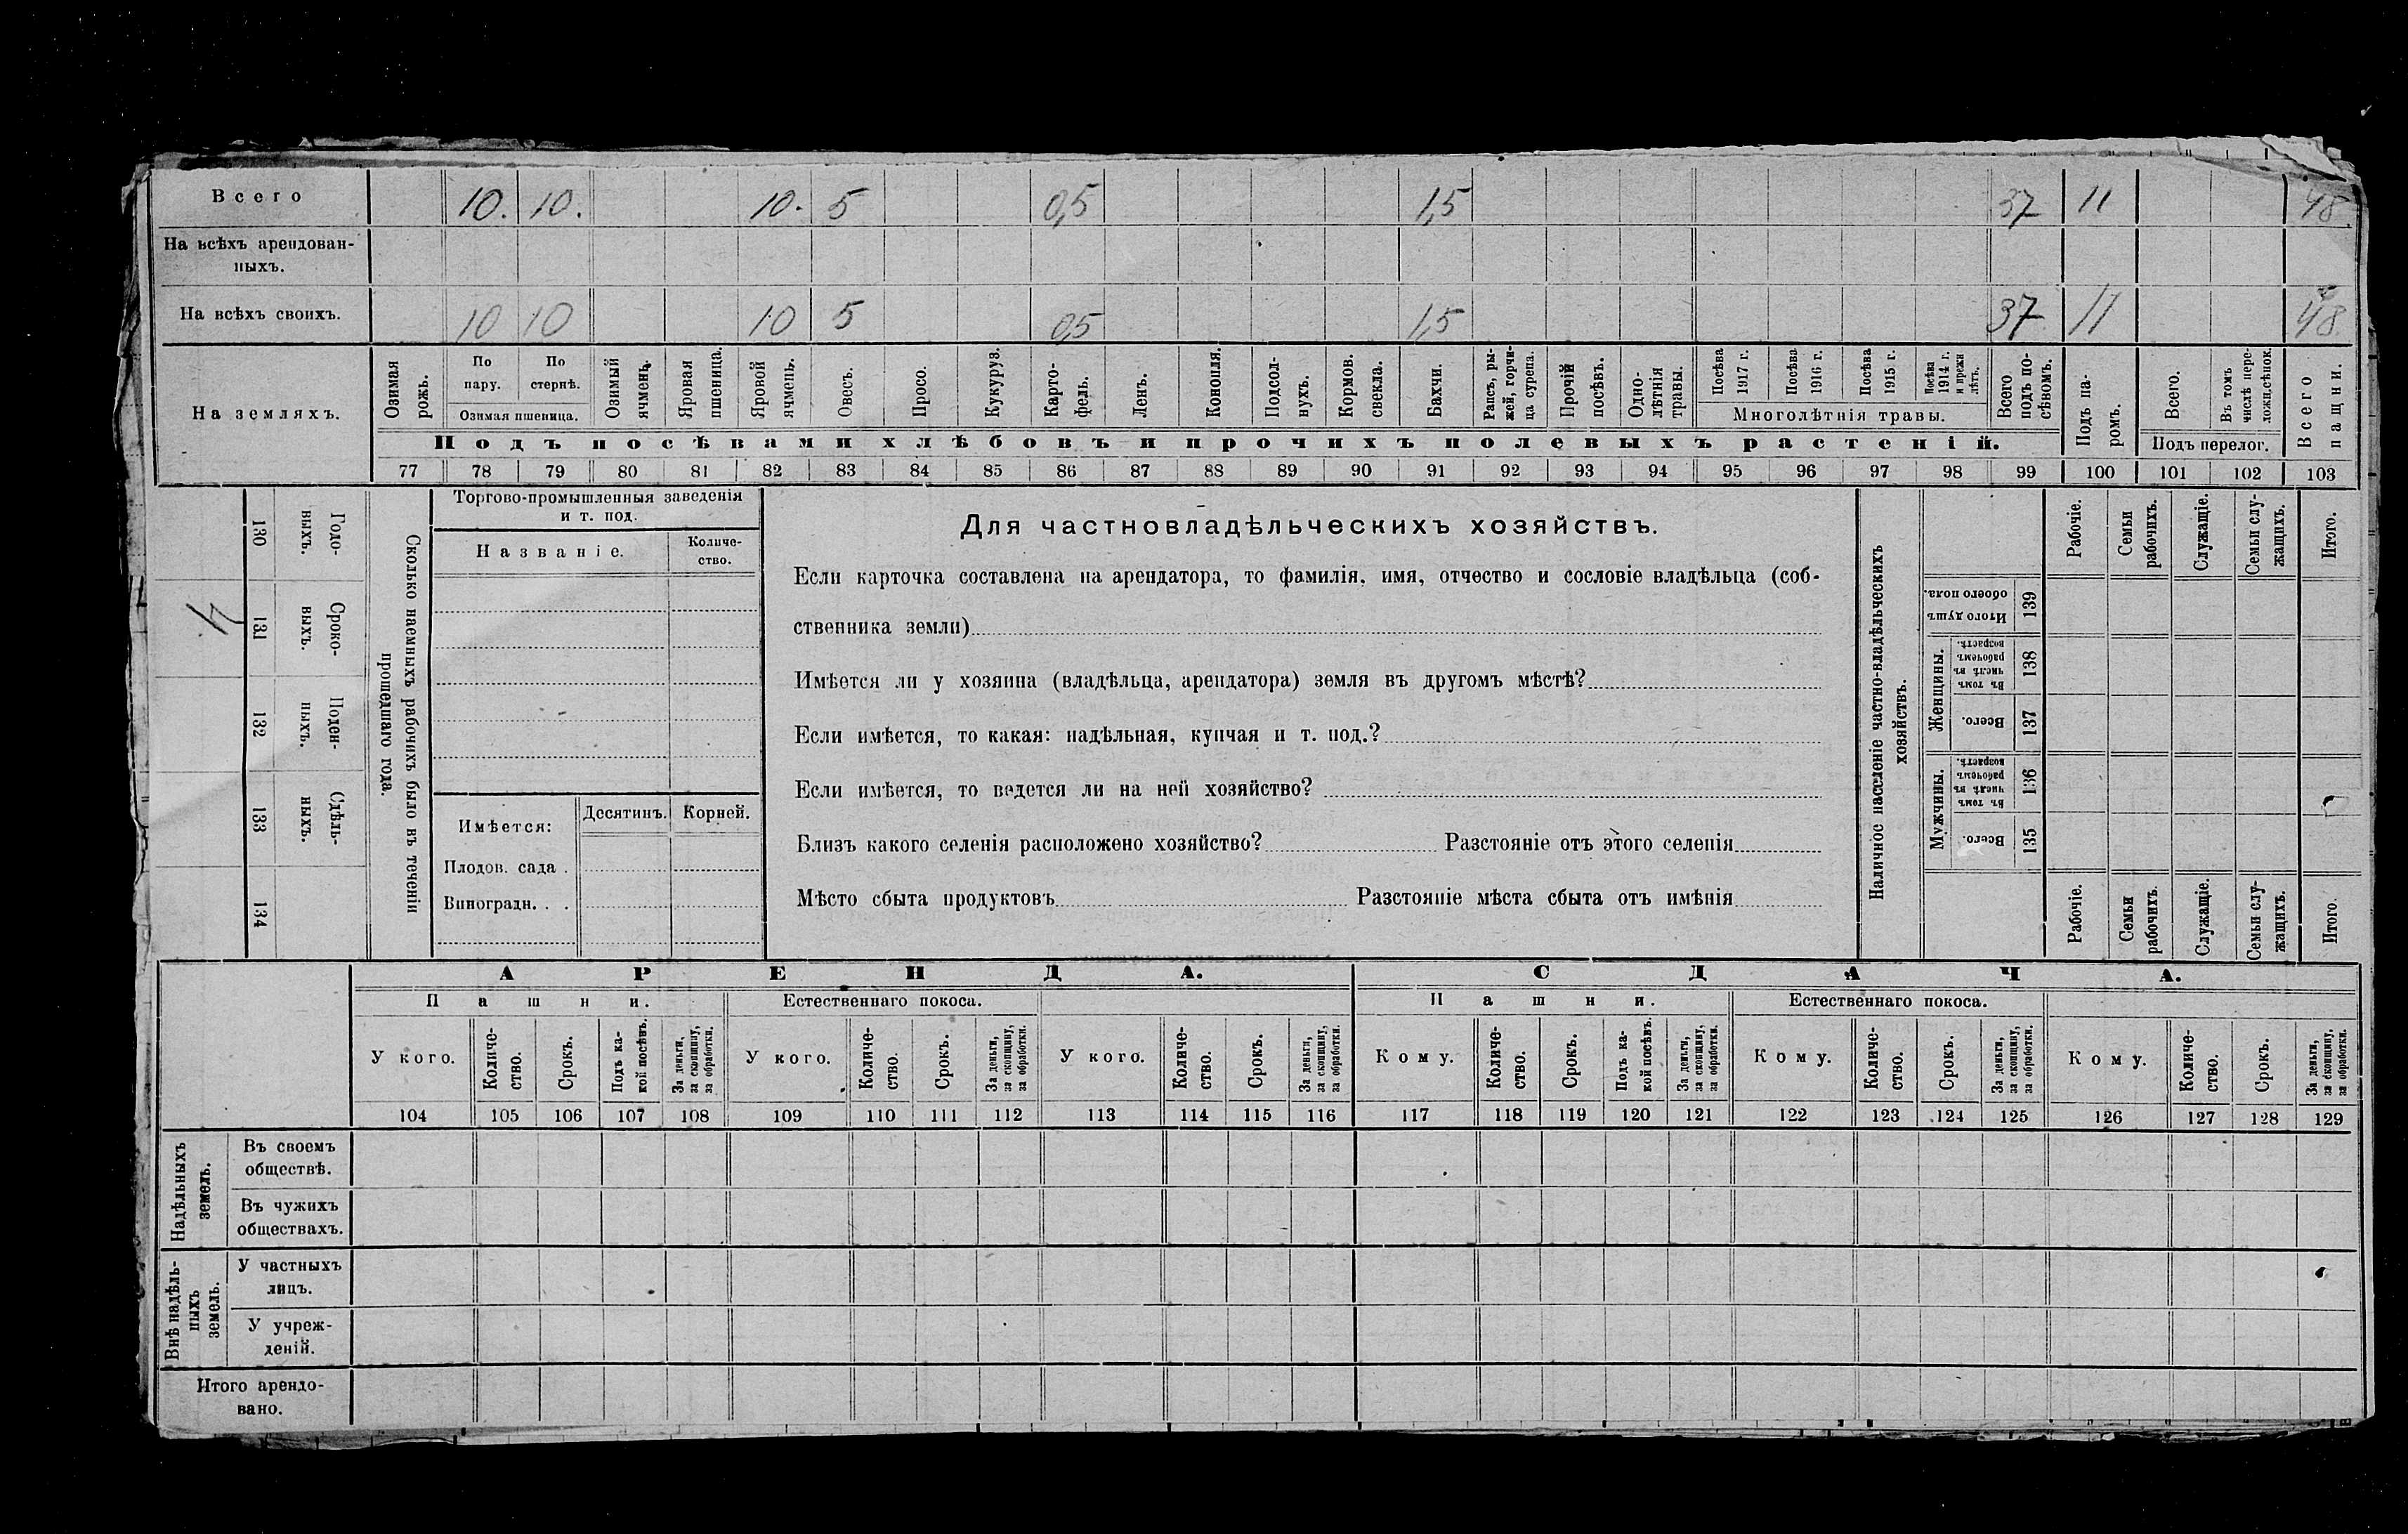 Всего 10. 10. 10. 5 0,5 1,5 37 11 48
На всѣхъ арендован-
ныхъ.
На всѣхъ своихъ. 10 10 10 5 0,5 1,5 37 11 48
На земляхъ.
Озимая рожь.
По пару.
По стернѣ.
Озимая пшеница.
Озимый ячмень.
Яровая пшеница.
Яровой ячмень.
Овесъ.
Просо.
Кукуруз.
Карто-
фель.
Ленъ.
Конопля.
Подсол-
нухъ.
Кормов.
свекла.
Бахчи.
Рапсъ, ры-
жей, горчи-
ца сурепа.
Прочій
посѣвъ.
Одно-
лѣтнія
травы.
Посѣва
1917 г.
Посѣва
1916 г.
Посѣва
1915 г.
Посѣва
1914 г.
и прежн
лѣтъ.
Многолѣтнія травы.
Всего
подъ по-
сѣвомъ.
Подъ па-
ромъ.
Всего.
Въ томъ
числѣ пере-
ложн.сѣнок.
Подъ перелог.
Всего
пашни.
Подъ посѣвами хлѣбовъ и прочихъ полевыхъ растеній.
77 78 79 80 81 82 83 84 85 86 87 88 89 90 91 92 93 94 95 96 97 98 99 100 101 102 103
Сколько наемныхъ рабочихъ было въ теченіи
прошедшаго года.
Годо-
выхъ.
130
Сроко-
выхъ.
131
4
Поден-
ныхъ.
132
Сдѣль-
ныхъ.
133
134
Торгово-промышленныя заведенія
и т. под.
Названіе.
Количе-
ство.
Имѣется:
Десятинъ.
Корней.
Плодов. сада .
Виноградн. . .
Для частновладѣльческихъ хозяйствъ.
Если карточка составлена на арендатора, то фамилія, имя, отчество и сословіе владѣльца (соб-
ственника земли)
Имѣется ли у хозяина (владѣльца, арендатора) земля въ другомъ мѣстѣ?
Если имѣется, то какая: надѣльная, купчая и т. под.?
Если имѣется, то ведется ли на ней хозяйство?
Близъ какого селенія расположено хозяйство? Разстояніе отъ этого селенія
Мѣсто сбыта продуктовъ Разстояніе мѣста сбыта отъ имѣнія
Наличное населеніе частно-владѣльческихъ
хозяйствъ.
Рабочіе.
Семьи
рабочихъ.
Служащіе.
Семьи слу-
жащихъ.
Итого.
Итого душъ
обоего пола.
139
Женщины.
Въ томъ
числѣ въ
рабочемъ
возрастѣ.
138
Всего.
137
Мужчины.
Въ томъ
числѣ въ
рабочемъ
возрастѣ.
136
Всего.
135
Рабочіе.
Семьи
рабочихъ.
Служащіе.
Семьи слу-
жащихъ.
Итого.
АРЕНДА. СДАЧА.
Пашни. Естественнаго покоса. Пашни. Естественнаго покоса.
У кого.
Количе-
ство.
Срокъ.
Подъ ка-
кой посѣвъ.
За деньги,
за скопщину,
за обработки.
У кого.
Количе-
ство.
Срокъ.
За деньги,
за скопщину,
за обработки.
У кого.
Количе-
ство.
Срокъ.
За деньги,
за скопщину,
за обработки.
Кому.
Количе-
ство.
Срокъ.
Подъ ка-
кой посѣвъ.
За деньги,
за скопщину,
за обработки.
Кому.
Количе-
ство.
Срокъ.
За деньги,
за скопщину,
за обработки.
Кому.
Количе-
ство.
Срокъ.
За деньги,
за скопщину,
за обработки.
104 105 106 107 108 109 110 111 112 113 114 115 116 117 118 119 120 121 122 123 124 125 126 127 128 129
Надѣльныхъ
земель.
Въ своемъ
обществѣ.
Въ чужихъ
обществахъ.
Внѣ надѣль-
ныхъ
земель.
У частныхъ
лицъ.
У учреж-
деній.
Итого арендо-
вано.